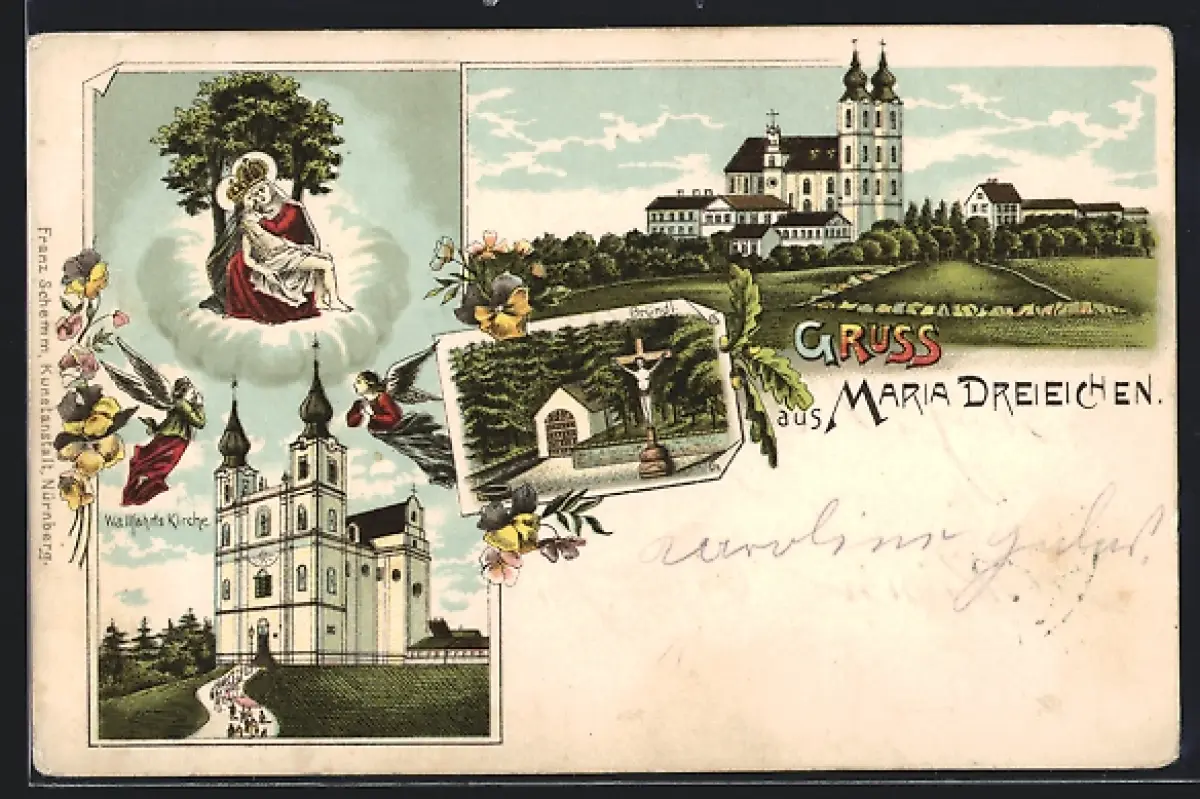 Franz Schemm, Kunstanstalt, Nürnberg.
Wallfahrts Kirche.
Bründl.
GRUSS
aus MARIA DREIEICHEN.
Karoline